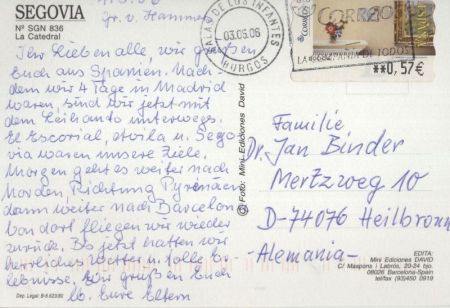 SEGOVIA
Nº SGN 836
La Catedral
Gr. v. Hammer
Ihr Lieben alle, wir grüßen
Euch aus Spanien. Nach-
dem wir 4 Tage in Madrid
waren, sind wir jetzt mit
dem Leihauto unterwegs.
El Escorial, Avila u. Sego-
via waren unsere Ziele.
Morgen geht es weiter nach
Norden, Richtung Pyrenäen
dann weiter nach Barcelon
von dort fliegen wir wieder
zurück. Bis jetzt hatten wir
herrliches Wetter u. tolle Er-
lebnisse. Wir grüßen Euch
lb. Eure Eltern
Dep. Legal: B-6.623/80
© Foto: Mini Ediciones David
SALAS DE LOS INFANTES
03.05.06
BURGOS
CORREOS
ESPAÑA
**0,57€
Familie
Dr. Jan Binder
Mertzweg 10
D-74076 Heilbronn
Alemania-
EDITA:
Mini Ediciones DAVID
C/ Maspons i Labrós, 20-24 bjo.
08026 Barcelona-Spain
tel/fax (93)450 0919